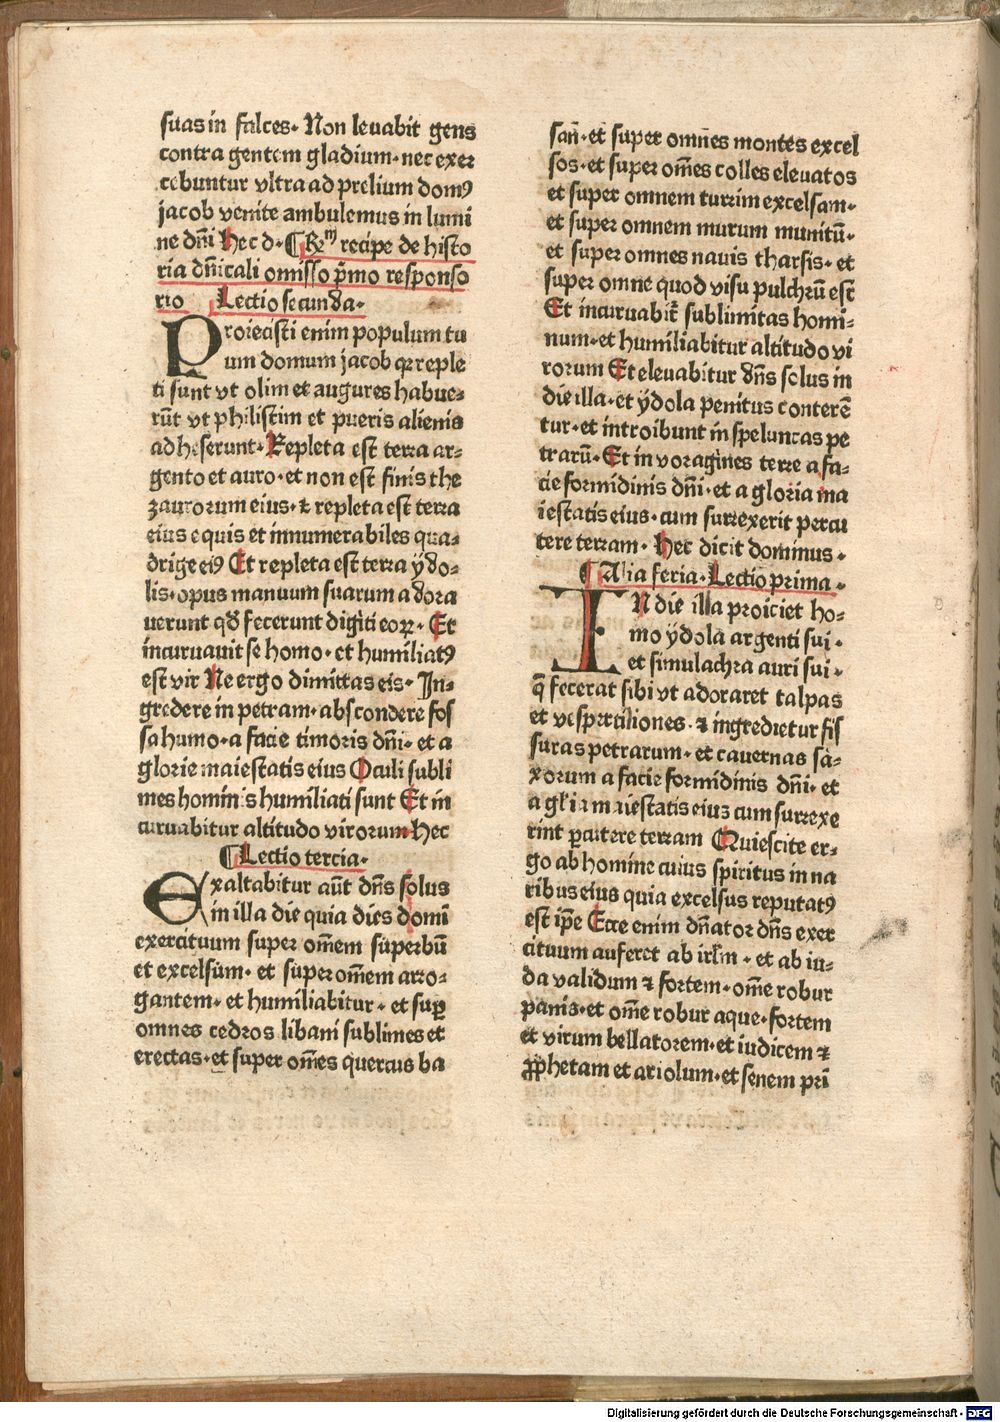 suas in falces· Non leuabit gens
contra gentem gladium· nec exer
cebuntur vltra ad prelium domꝰ
jacob venite ambulemus in lumi
ne dn̄i Hec d· ¶ R̄m recipe de histo
ria dn̄icali omisso p̄mo responso
rio Lectio secunda·
PRoiecisti enim populum tu
um domum jacob qꝛ reple
ti sunt vt olim et augures habue⸗
rūt vt philistim et pueris alienis
adheserunt· Repleta est terra ar⸗
gento et auro· et non est finis the
zaurorum eius· ⁊ repleta est terra
eius equis et innumerabiles qua⸗
drige eiꝰ Et repleta est terra ẏdo⸗
lis· opus manuum suarum adora
uerunt qd̄ fecerunt digiti eoꝝ· Et
incuruauit se homo· et humiliatꝰ
est vir Ne ergo dimittas eis· In⸗
gredere in petram· abscondere fos
sa humo· a facie timoris dn̄i· et a
glorie maiestatis eius Oculi subli
mes hominis humiliati sunt Et in
curuabitur altitudo virorum Hec
¶ Lectio tercia·
Exaltabitur aūt dn̄s solus
in illa die quia dies domī
exercituum super om̄em superbū
et excelsum· et super om̄em arro⸗
gantem· et humiliabitur· et suꝑ
omnes cedros libani sublimes et
erectas· et super om̄es quercus ba
san̄· et super omnes montes excel
sos· et super om̄es colles eleuatos
et super omnem turrim excelsam·
et super omnem murum munitū·
et super omnes nauis tharsis· et
super omne quod visu pulchrū est
Et incuruabit᷑ sublimitas homi⸗
num· et humiliabitur altitudo vi
rorum Et eleuabitur dn̄s solus in
die illa· et ẏdola penitus conterē
tur· et introibunt in speluncas pe
trarū· Et in voragines terre a fa⸗
cie formidinis dn̄i· et a gloria ma
iestatis eius· cum surrexerit percu
tere terram· Hec dicit dominus·
¶ Alia feria· Lectio prima·
IN die illa proiciet ho⸗
mo ẏdola argenti sui·
et simulachra auri sui·
q̄ fecerat sibi vt adoraret talpas
et vespertiliones· ⁊ ingredietur fis
suras petrarum· et cauernas sa⸗
xorum a facie formidinis dn̄i· et
a gloria maiestatis eius cum surrexe
rint ꝑcutere terram Quiescite er⸗
go ab homine cuius spiritus in na
ribus eius quia excelsus reputatꝰ
est ip̄e Ecce enim dn̄ator dn̄s exer
cituum auferet ab irl̄m· et ab iu⸗
da validum ⁊ fortem· om̄e robur
panis· et om̄e robur aque· fortem
et virum bellatorem· et iudicem ⁊
ꝓphetam et ariolum· et senem pri
Digitalisierung gefördert durch die Deutsche Forschungsgemeinschaft - DFG